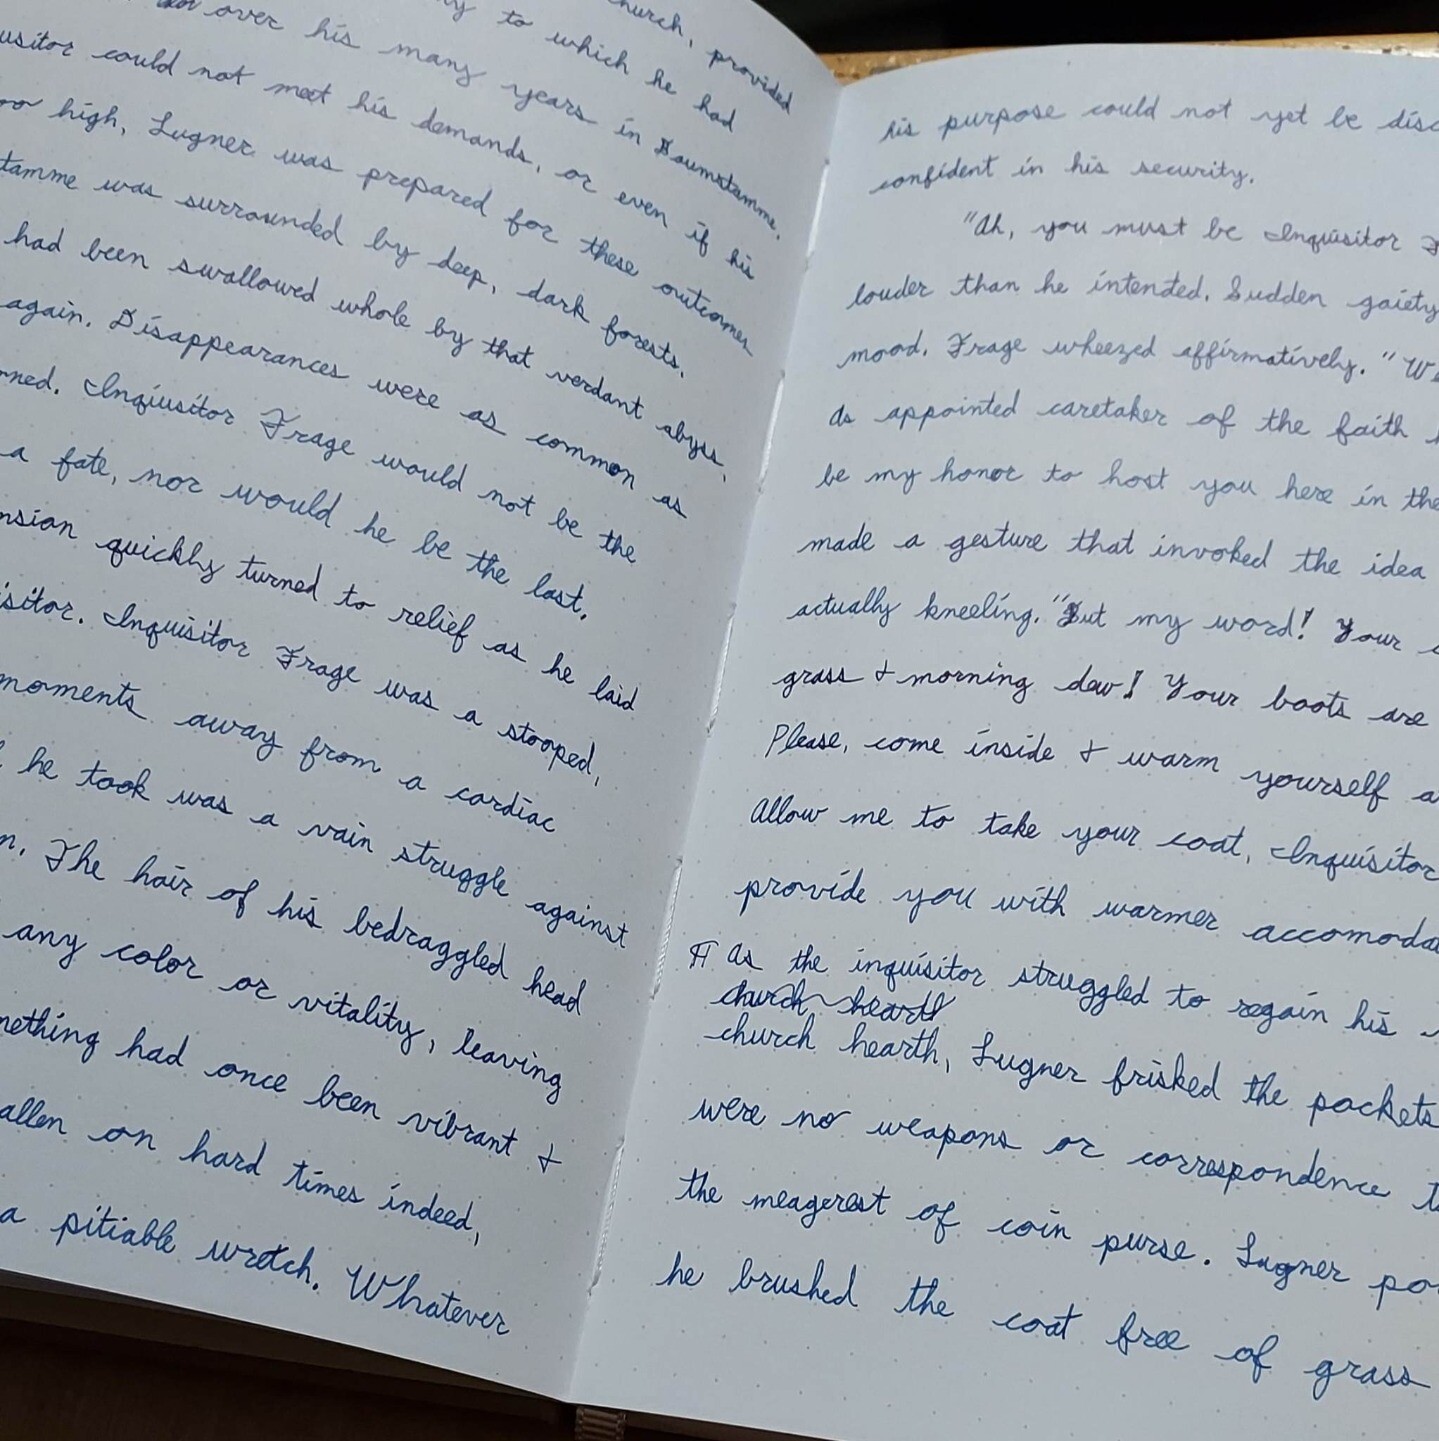 church, provided
to which he had
over his many years in Baumstamme.
usitor could not meet his demands, or even if his
oo high, Lugner was prepared for these outcomes
tamme was surrounded by deep, dark forests.
had been swallowed whole by that verdant abyss,
again. Disappearances were as common as
rned. Inqiusitor Frage would not be the
a fate, nor would he be the last.
nsion quickly turned to relief as he laid
isitor. Inquisitor Frage was a stooped,
moments away from a cardiac
he took was a vain struggle against
n. The hair of his bedraggled head
any color or vitality, leaving
mething had once been vibrant &
allen on hard times indeed,
a pitiable wretch. Whatever
his purpose could not yet be disc
confident in his security.
"Ah, you must be Inquisitor F
louder than he intended. Sudden gaiety
mood. Frage wheezed affirmatively. "We
As appointed caretaker of the faith
be my honor to host you here in the
made a gesture that invoked the idea
actually kneeling. "But my word! Your
grass & morning dew! Your boots are
Please, come inside & warm yourself a
Allow me to take your coat, Inquisitor
provide you with warmer accomoda
As the inquisitor struggled to regain his
church hearth
church hearth, Lugner frisked the pockets
were no weapons or correspondence t
the meagerest of coin purse. Lugner po
he brushed the coat free of grass